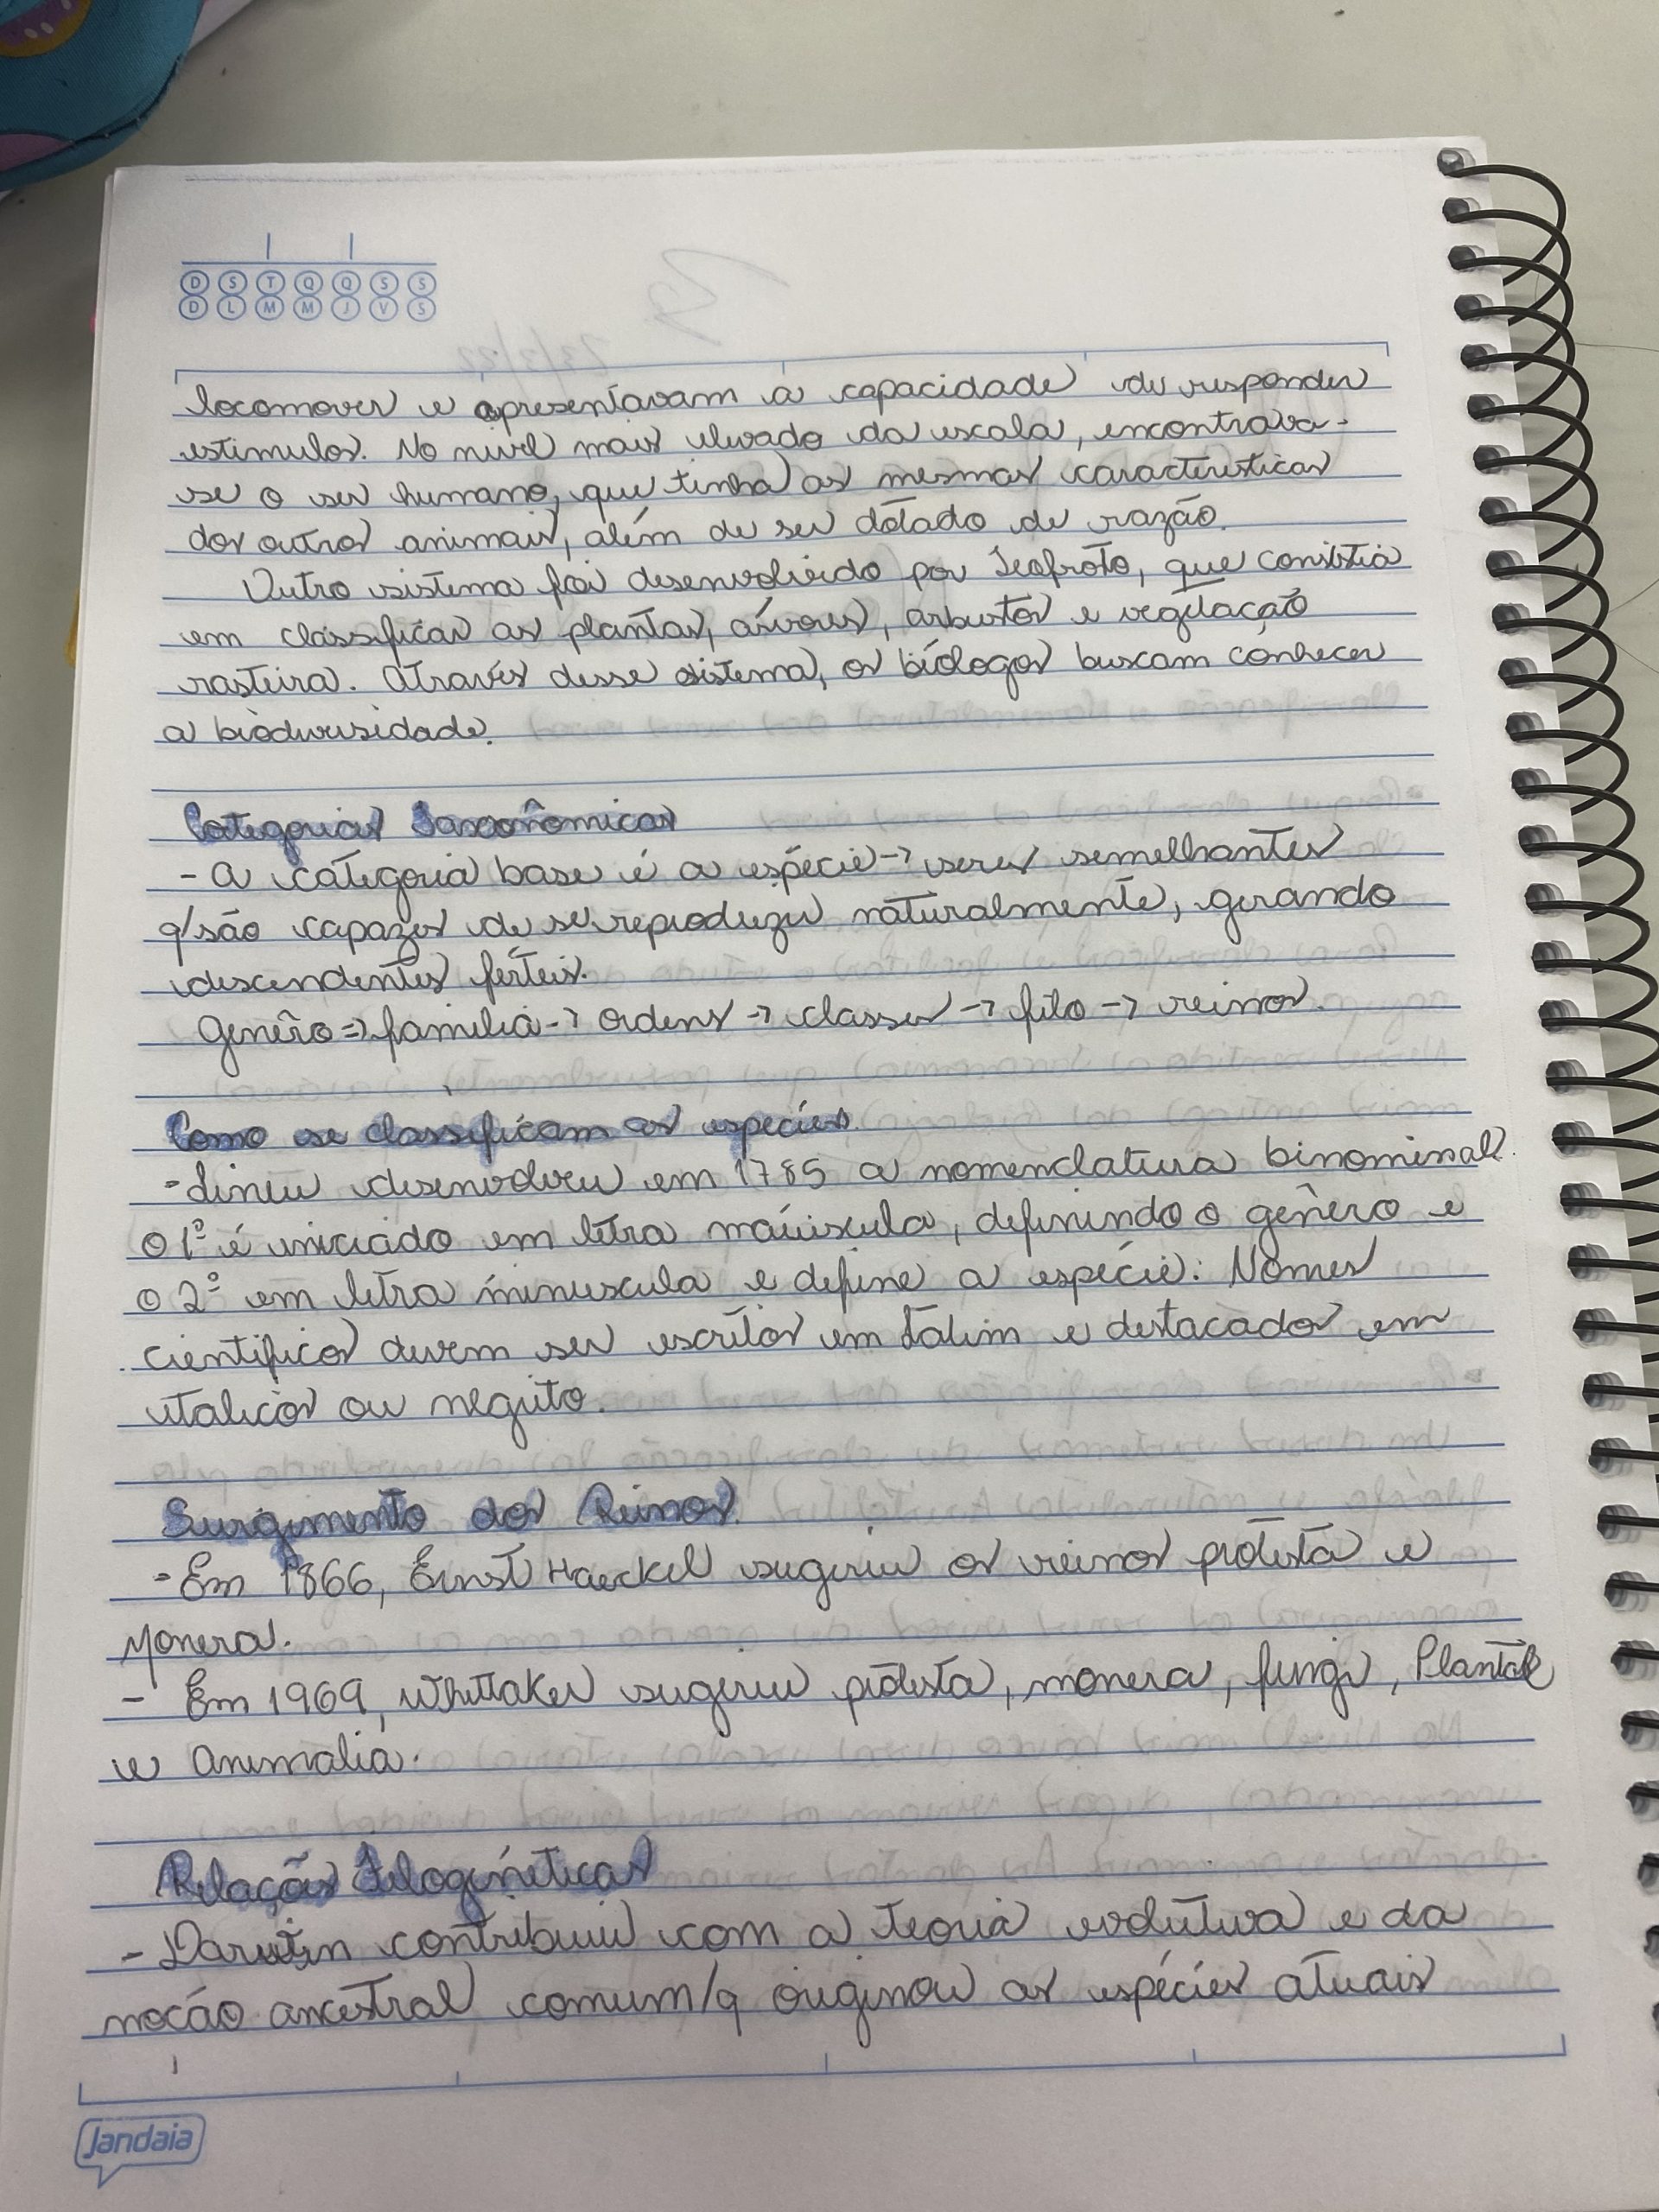 D S T Q Q S S
D L M M J V S
locomover e apresentavam a capacidade de responder
estimulos. No nível mais elevado da escala, encontrava-
se o ser humano, que tinha as mesmas características
dos outros animais, além de ser dotado de razão.
Outro sistema foi desenvolvido por Teofroto, que consistia
em classificar as plantas, árvores, arbustos e vegetação
rasteira. Através desse sistema, os biólogos buscam conhecer
a biodiversidade.
Categorias Taxonômicas
- A categoria base é a espécie -> seres semelhantes
q/ são capazes de se reproduzir naturalmente, gerando
descendentes férteis.
Genêro => família -> ordens -> classes -> filo -> reinos.
Como se classificam as espécies.
- Lineu desenvolveu em 1785 a nomenclatura binominal.
O 1º é iniciado em letra maiúscula, definindo o gênero e
o 2º em letra minuscula e define a espécie. Nomes
cientificos devem ser escritos em Latim e destacados em
italicos ou negrito.
Surgimento dos Reinos.
- Em 1866, Ernst Haeckel sugeriu os reinos protista e
Monera.
- Em 1969, Whittaker sugeriu protista, monera, fungi, Plantae
e Animalia.
Relação Filogenéticas
- Darwin contribuiu com a teoria evolutiva e da
noção ancestral comum/q originou as espécies atuais
Jandaia